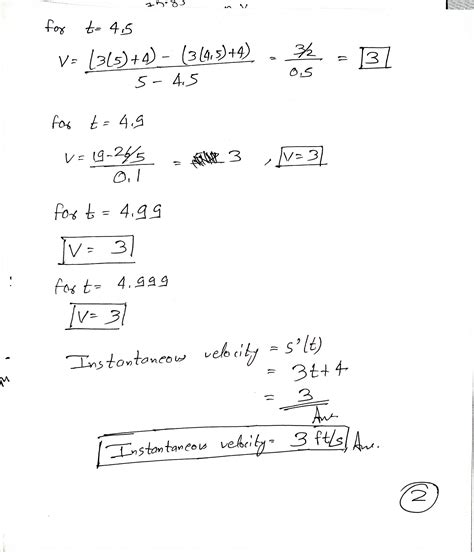 for t= 4.5
V= (3(5)+4) - (3(4.5)+4) / 5 - 4.5 = 3/2 / 0.5 = 3
for t = 4.9
V= 19- / 0.1 = 3 , V= 3
for t = 4.99
V= 3
for t= 4.999
V= 3
Instantaneous velocity = s'(t)
= 3t+4
= 3
Ans
Instantaneous velocity= 3 ft/s, Ans.
2